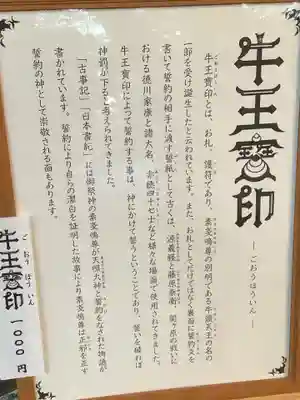 牛王寶印
―ごおうほういん―
牛王寶印とは、お札、護符であり、素戔嗚尊の別明である牛頭天王の名の
一部を受け誕生したと云われています。また、お札としてだけではなく裏面に誓約文を
書いて誓約の相手に渡す誓紙として古くは、源義経と藤原泰衡、関ヶ原の戦いに
おける徳川家康と諸大名、赤穂四十七士など様々な場面で使用されてきました。
牛王寶印によって誓約する事は、神にかけて誓うということであり、誓いを破れば
神罰が下ると考えられてきました。
「古事記」「日本書記」には御祭神の素戔嗚尊が天照大神と誓約をなされた物語が
書かれています。誓約により自らの潔白を証明した故事により素戔嗚尊は正邪を正す
誓約の神として崇敬される面もあります。
ごおうほういん
牛王寶印
一〇〇〇円